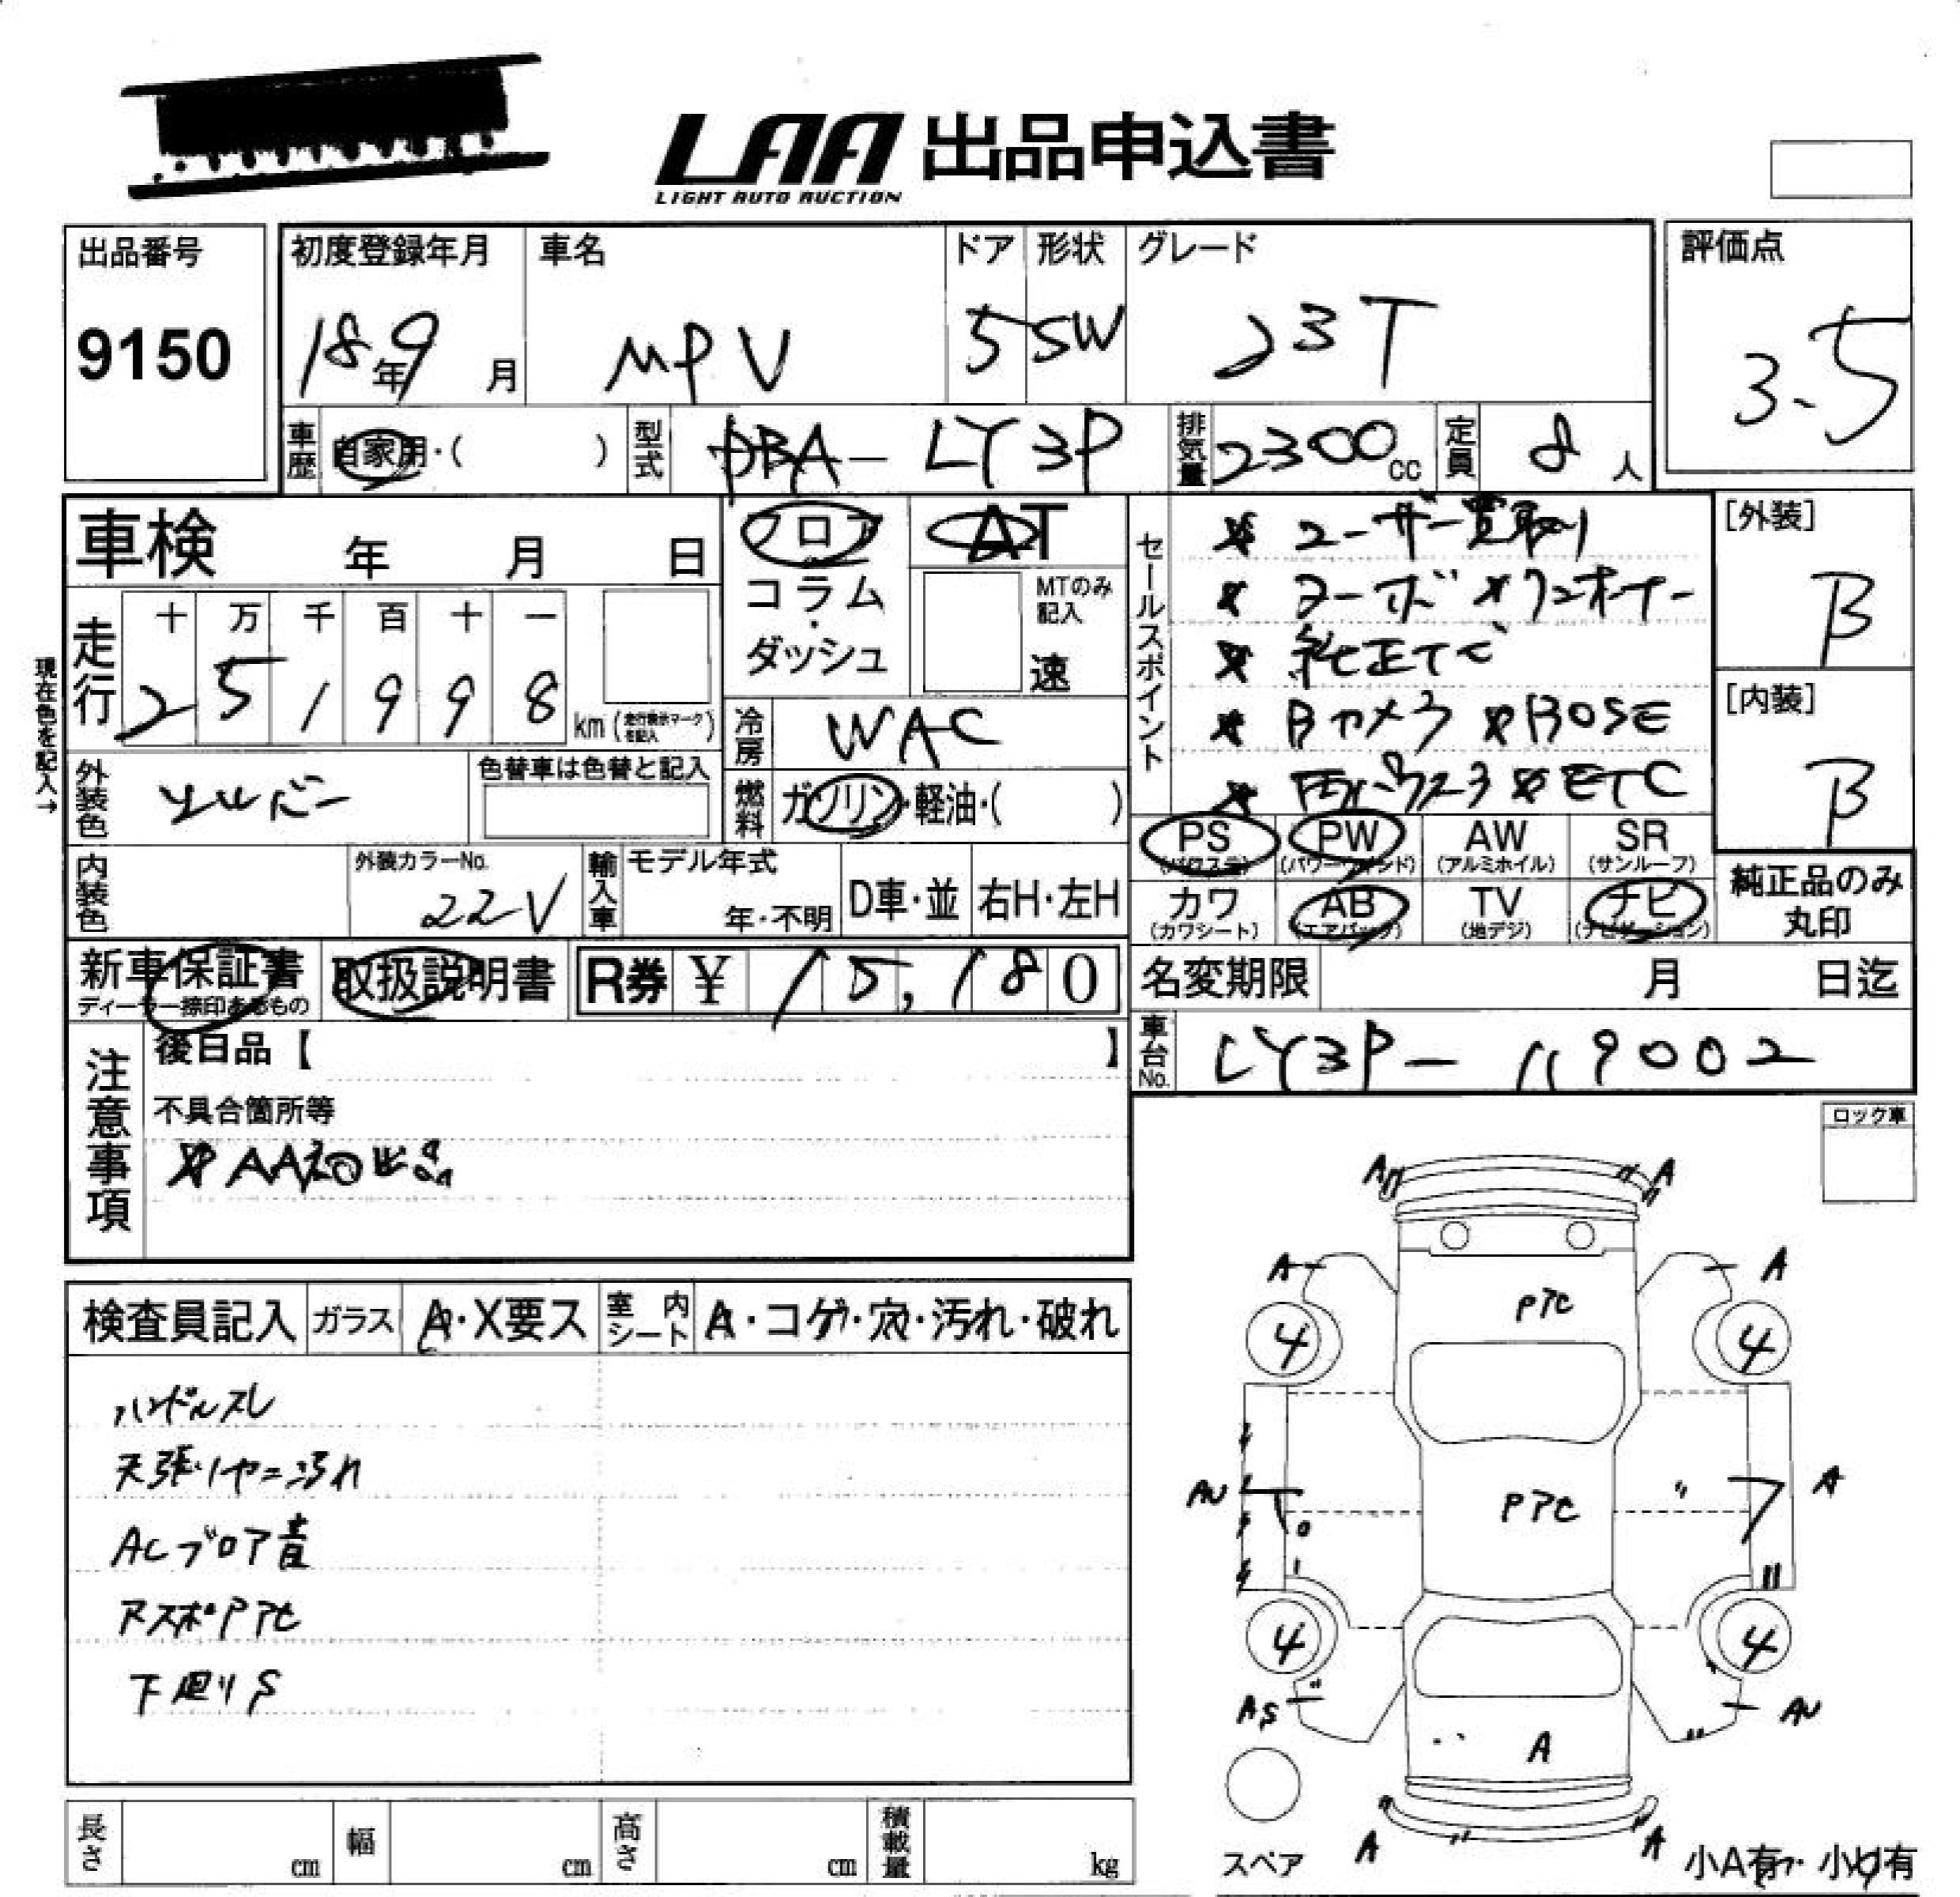 LAA 出品申込書
LIGHT AUTO AUCTION
出品番号
9150
初度登録年月
18年9月
車名
MPV
ドア
5
形状
SW
グレード
23T
評価点
3.5
車歴
自家用・( )
型式
DBA-LY3P
排気量
2300cc
定員
8人
車検 年 月 日
フロア
コラム・ダッシュ
AT
MTのみ記入
速
セールスポイント
* ユーザー買取り
* ターボ * ワンオーナー
* Bカメラ * BOSE
* 両パワスラ * ETC
[外装]
B
[内装]
B
現在色を記入→
走行
十 万 千 百 十 一
2 5 1 9 9 8 km (走行表示マークを記入)
冷房
WAC
外装色
シルバー
色替車は色替と記入
燃料
ガソリン・軽油・( )
PS (パワステ)
PW (パワーウィンド)
AW (アルミホイル)
SR (サンルーフ)
カワ (カワシート)
AB (エアバック)
TV (地デジ)
ナビ (ナビゲーション)
純正品のみ丸印
内装色
外装カラーNo.
22V
輸入車
モデル年式
年・不明
D車・並
右H・左H
新車保証書
ディーラー捺印あるもの
取扱説明書
R券 ¥ 15,180
名変期限 月 日迄
車台No.
LY3P-119002
注意事項
後日品【 】
不具合箇所等
* AA初出品
ロック車
検査員記入
ガラス
A・X要ス
室内シート
A・コゲ・穴・汚れ・破れ
ハンドルスレ
天張りヤニ汚れ
ACブロア音
下廻りS
A A
A A
P7C
4 4
AU
P7C
A
4 4
AS
AU
A
A A
スペア
小A有・小U有
長さ cm
幅 cm
高さ cm
積載量 kg